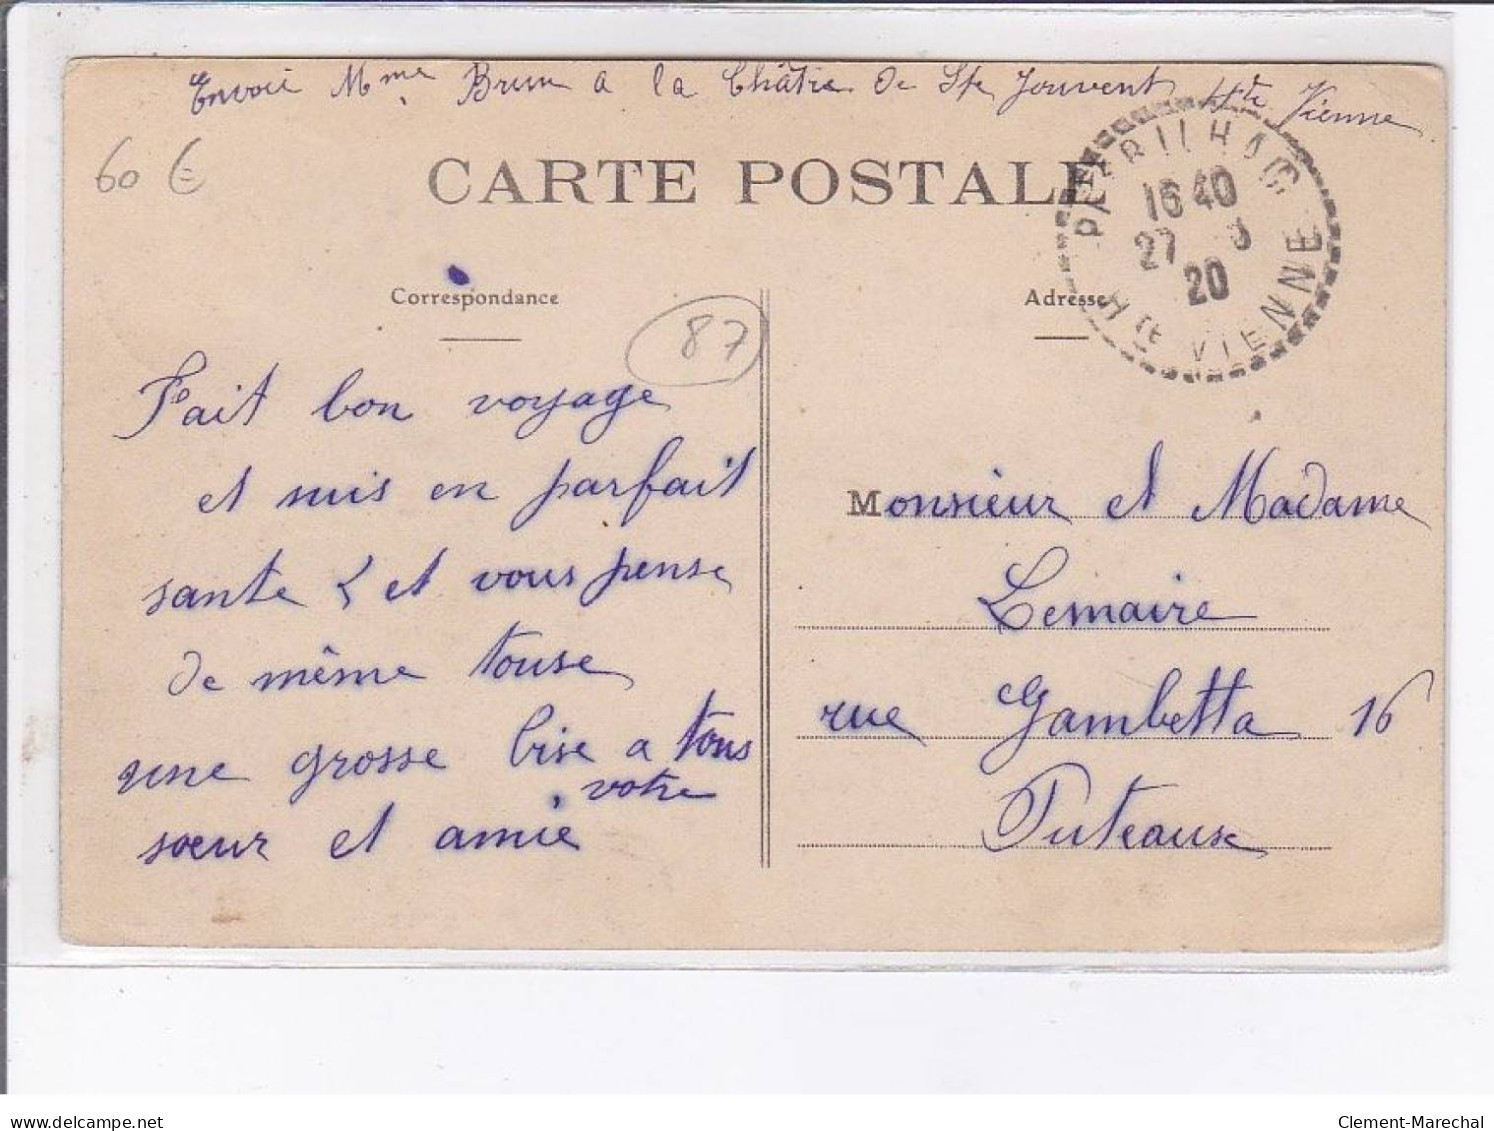 Envoie Mme Brun a la Châtre de Ste Jouvent Hte Vienne
60 €
CARTE POSTALE
PEYRILHAC
16 40
27 3
20
Hte VIENNE
Correspondance
87
Adresse
Fait bon voyage
et suis en parfait
sante et vous pense
de même touse
une grosse bise a tous
votre
sœur et amie
Monsieur et Madame
Lemaire
rue Gambetta 16
Puteaux
delcampe.net
Clement-Marechal